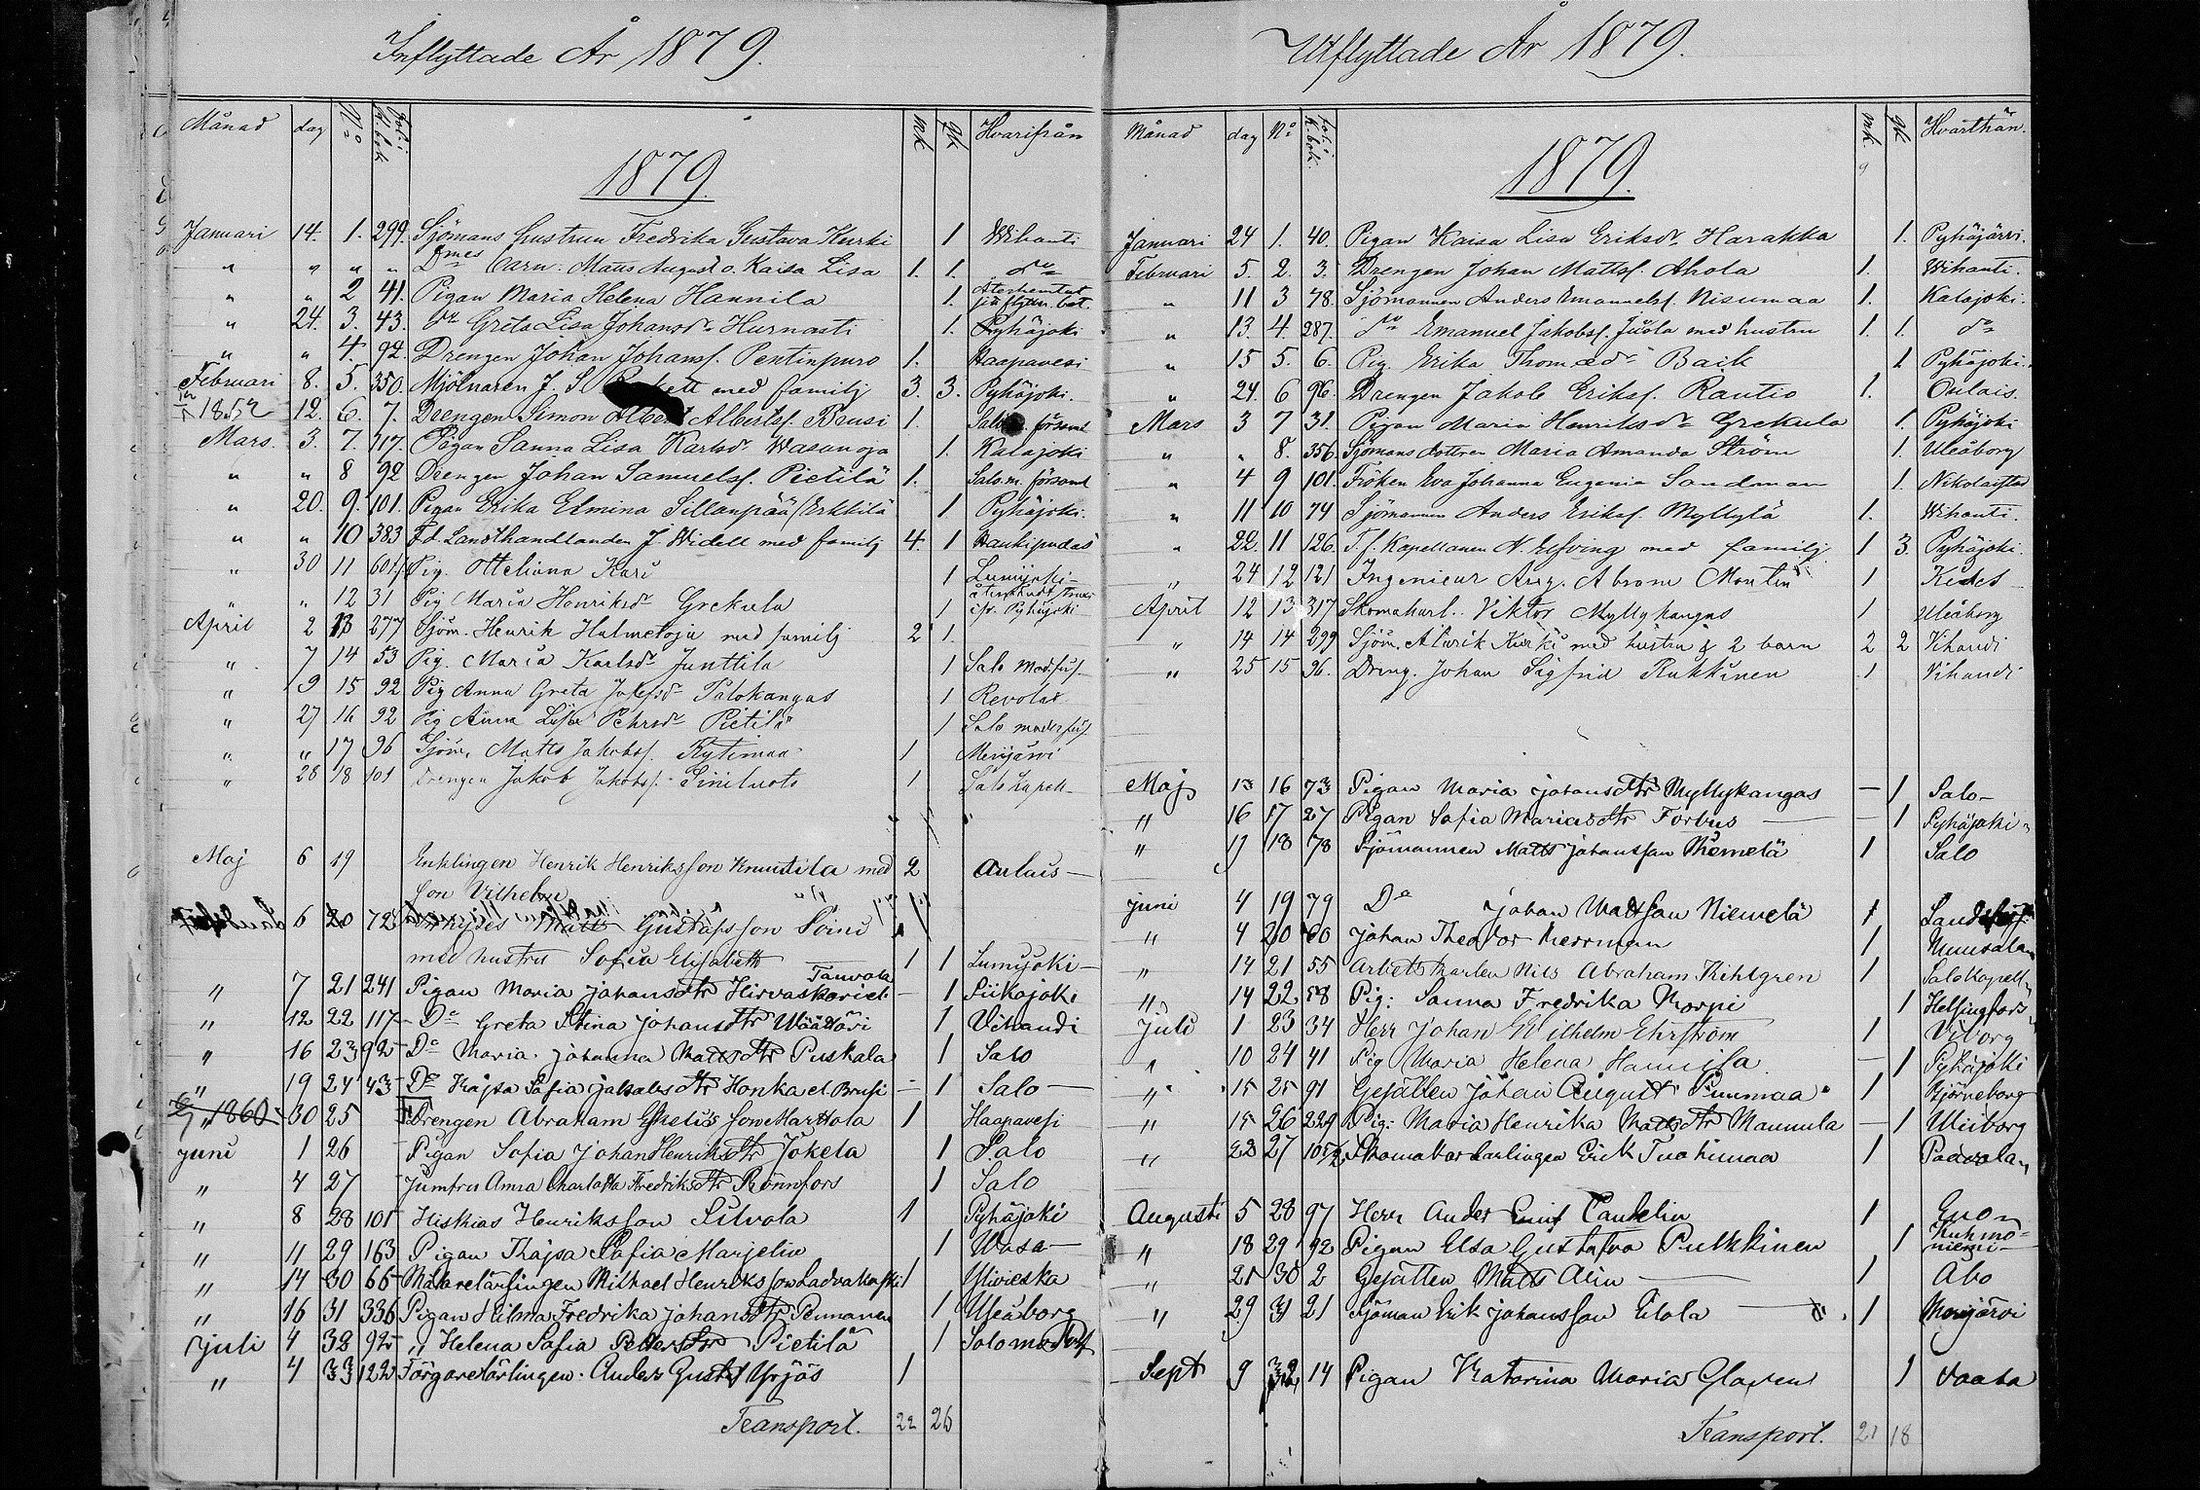 Inflyttade År 1879.
Månad dag No mk qk Hvarifrån
1879.
Januari 14. 1. 299. Sjömans hustrun Fredrika Gustava Kurki 1 Wihanti
" " " " barn: Matts August o. Kaisa Lisa 1. 1. do
" " 2 41. Pigan Maria Helena Hannila 1.
" 24. 3. 43. do Greta Lisa Johansdr Hurnasti 1. Pyhäjoki
" " 4. 92. Drengen Johan Johansf. Pentinpuro 1. Haapavesi
Februari 8. 5. 350. Mjölnaren J. S. med familj 3. 3. Pyhäjoki.
1852 12. 6. 7. Drengen Simon Albert Albertsf. Brusi 1. församl
Mars. 3. 7. 117. Pigan Sanna Lisa Karlsdr Wasanoja 1. Kalajoki
" " 8 92 Drengen Johan Samuelsf. Pietilä 1. Salo m. församl
" 20. 9. 101. Pigan Erika Elmina Sillanpää (Erkkilä 1 Pyhäjoki.
" " 10 383 F.d. Landthandlanden J. Widell med familj 4. 1 Haukipudas
" 30 11 601 Pig. Otteliana Kari 1 Lumijoki
" " 12 31 Pig Maria Henriksdr Grekula 1 Pyhäjoki
April 2 13 277 Sjöm. Henrik Halmetoja med familj 2 1.
" 7 14 53 Pig. Maria Karlsdr Junttila 1 Salo
" 9 15 92 Pig Anna Greta Josefsdr Palokangas 1 Revolax
" 27 16 92 Pig Anna Lisa Pehrsdr Pietilä 1 Salo
" " 17 96 Sjöm. Matts Jakobsf. Kytimaa 1 Merijärvi
" 28 18 101 Drengen Jakob Jakobsf. Siniluoto 1 Salo Kapell
Maj 6 19 Enklingen Henrik Henriksson Knuutila med 2 Oulais
son Vilhelm
6 20 72 Gustafsson Soini
med hustru Sofia Elisabeth 1 1 Lumijoki
Tauvola
" 7 21 241 Pigan Maria Johansdtr Hirvaskorich 1 Siikajoki
" 12 22 117 Do Greta Stina Johansdtr Wäätäri 1 Vihandi
" 16 23 92 Do Maria Johanna Mattsdtr Puskala 1 Salo
" 19 24 43 Do Kajsa Sofia Jakobsdtr Honka el. Brusi 1 Salo
1860 30 25 Drengen Abraham Marttola 1 Haapavesi
Juni 1 26 Pigan Sofia Johan Henriksdtr Jokela 1 Salo
" 4 27 Jumfru Anna Charlotta Fredriksdtr Rönnfors 1 Salo
" 8 28 101 Hiskias Henriksson Silvola 1 Pyhäjoki
" 11 29 163 Pigan Thajsa Sofia Marjelin 1 Wasa
" 14 30 66 Michael Henriksson 1 Ylivieska
" 16 31 336 Pigan Hilma Fredrika Johansdtr Pennanen 1 Uleåborg
Juli 4 32 92 " Helena Sofia Pettersdtr Pietilä 1 Salo
" 4 33 122 Färgarelärlingen Anders Gustaf Yrjös 1
Transport. 22 26
Utflyttade År 1879.
Månad dag No mk. qk Hvarthän.
1879.
Januari 24 1. 40. Pigan Kaisa Lisa Eriksdr Harakka 1. Pyhäjärvi.
Februari 5. 2. 3. Drengen Johan Mattsf. Ahola 1. Wihanti.
" 11 3 78. Sjömannen Anders Emanuelsf. Nisumaa 1. Kalajoki.
" 13. 4. 287. do Emanuel Jakobsf. Juola med hustru 1. 1. do
" 15 5. 6. Pig. Erika Thomædr Baik 1 Pyhäjoki.
" 24. 6 96. Drengen Jakob Eriksf. Rautio 1. Oulais.
Mars 3 7 31. Pigan Maria Henriksdr Grekula 1. Pyhäjoki
" " 8. 356. Sjömans dottren Maria Amanda Ström 1. Uleåborg
" 4 9 101. Fröken Eva Johanna Eugenia Sandman 1. Nikolaistad
" 11 10 74 Sjömannen Anders Eriksf. Myllylä 1. Wihanti.
" 22. 11 126. T.f. Kapellanen N. Elfving med familj 1 3 Pyhäjoki.
" 24 12 121 Ingenieur Arvz. Abram Montin 1 Kides
April 12 13 317 Skomakarl. Viktor Myllykangas 1 Uleåborg
" 14 14 299 Sjöm. Alarik Kurki med hustru & 2 barn 2 2 Vihandi
" 25 15 96. Dreng. Johan Sigfrid Rukkinen 1 Vihandi
Maj 13 16 73 Pigan Maria Johansdtr Myllykangas — 1 Salo
" 16 17 27 Pigan Sofia Mariasdtr Forbus — 1 Pyhäjoki
" 17 18 78 Sjömannen Matts Johansson Niemelä 1 Salo
Juni 4 19 79 Do Johan Mattsson Niemelä 1
" 4 20 80 Johan Theodor Herrman 1 Muusalan
" 14 21 55 Arbetskarlen Nils Abraham Kihlgren 1 Salo Kapell
" 14 22 58 Pig: Sanna Fredrika Korpi 1 Helsingfors
Juli 1 23 34 Herr Johan Wilhelm Ehrström 1 Viborg
" 10 24 41 Pig Maria Helena Hannila — 1 Pyhäjoki
" 15 25 91 Gesällen Johan August Punmaa 1 Björneborg
" 15 26 229 Pig: Maria Henrika Mattsdtr Mannula — 1 Uleåborg
" 22 27 105/2 Skomakarlärlingen Erik Tuohimaa 1 Paavola
Augusti 5 28 97 Herr Ander Emil Candelin 1 Enon
" 18 29 92 Pigan Elsa Gustafva Pulkkinen 1 Kuhmo=
niemi
" 21 30 2 Gesällen Matts Alin 1 Åbo
" 29 31 21 Sjöman Erik Johansson Eilola 1 Merijärvi
Sept 9 32 14 Pigan Katarina Maria Glaven 1 Vaasa
Transport. 21 18